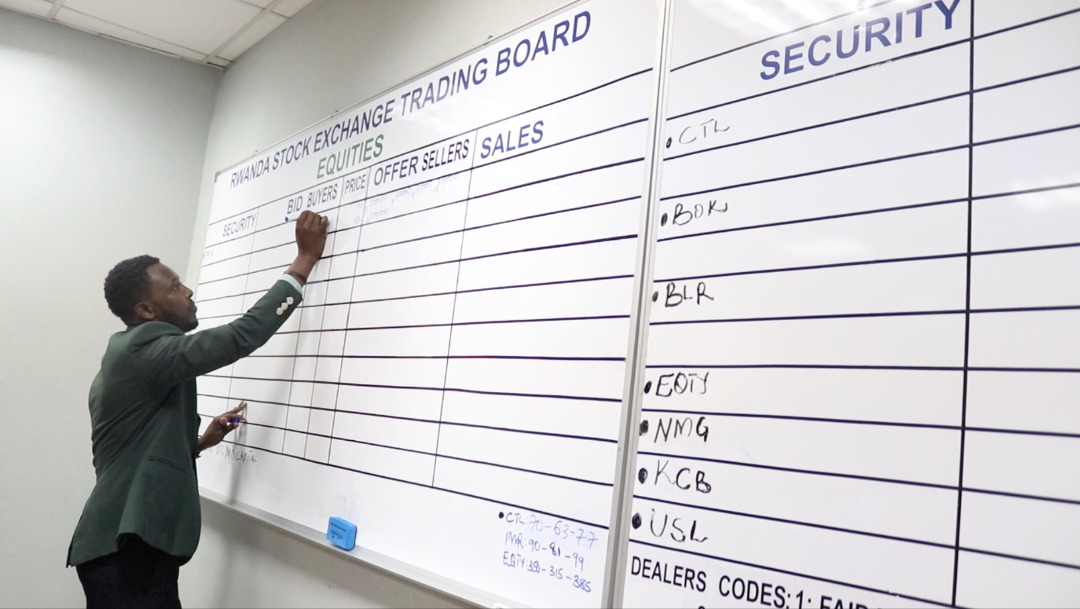 RWANDA STOCK EXCHANGE TRADING BOARD
EQUITIES
SECURITY BID BUYERS PRICE OFFER SELLERS SALES
• CTL: 70-63-77
IMR: 90-81-99
EQTY: 350-315-385
SECURITY
• CTL
• BOK
• BLR
• EQTY
• NMG
• KCB
• USL
DEALERS CODES: 1: